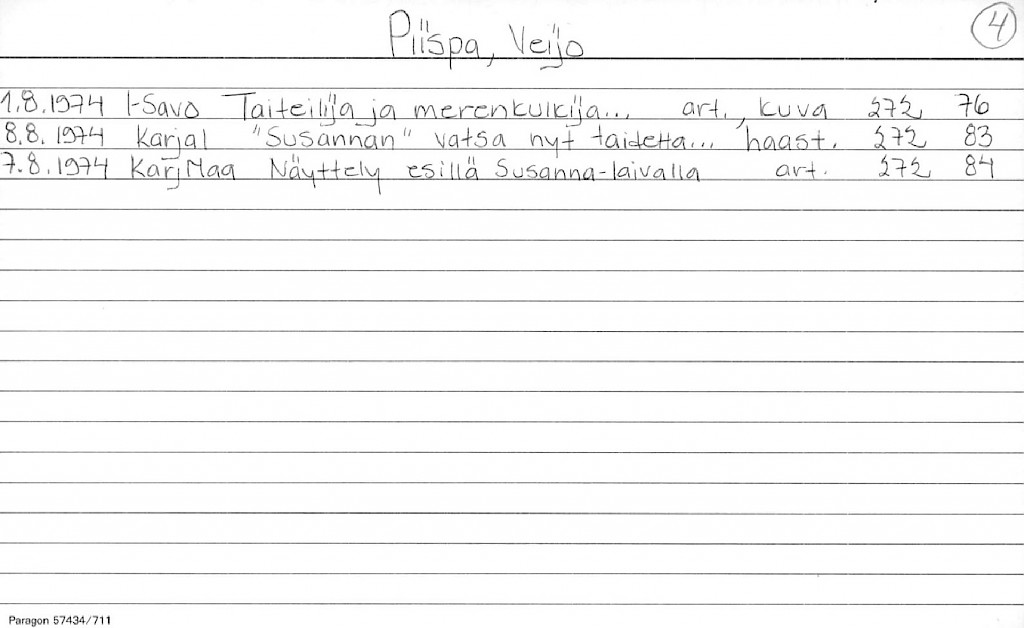 Piispa, Veijo
4
1.8.1974 I-Savo Taiteilija ja merenkulkija... art., kuva 272 76
8.8.1974 Karjal "Susannan" vatsa nyt taidetta... haast. 272 83
7.8.1974 KarjMaa Näyttely esillä Susanna-laivalla art. 272 84
Paragon 57434/711